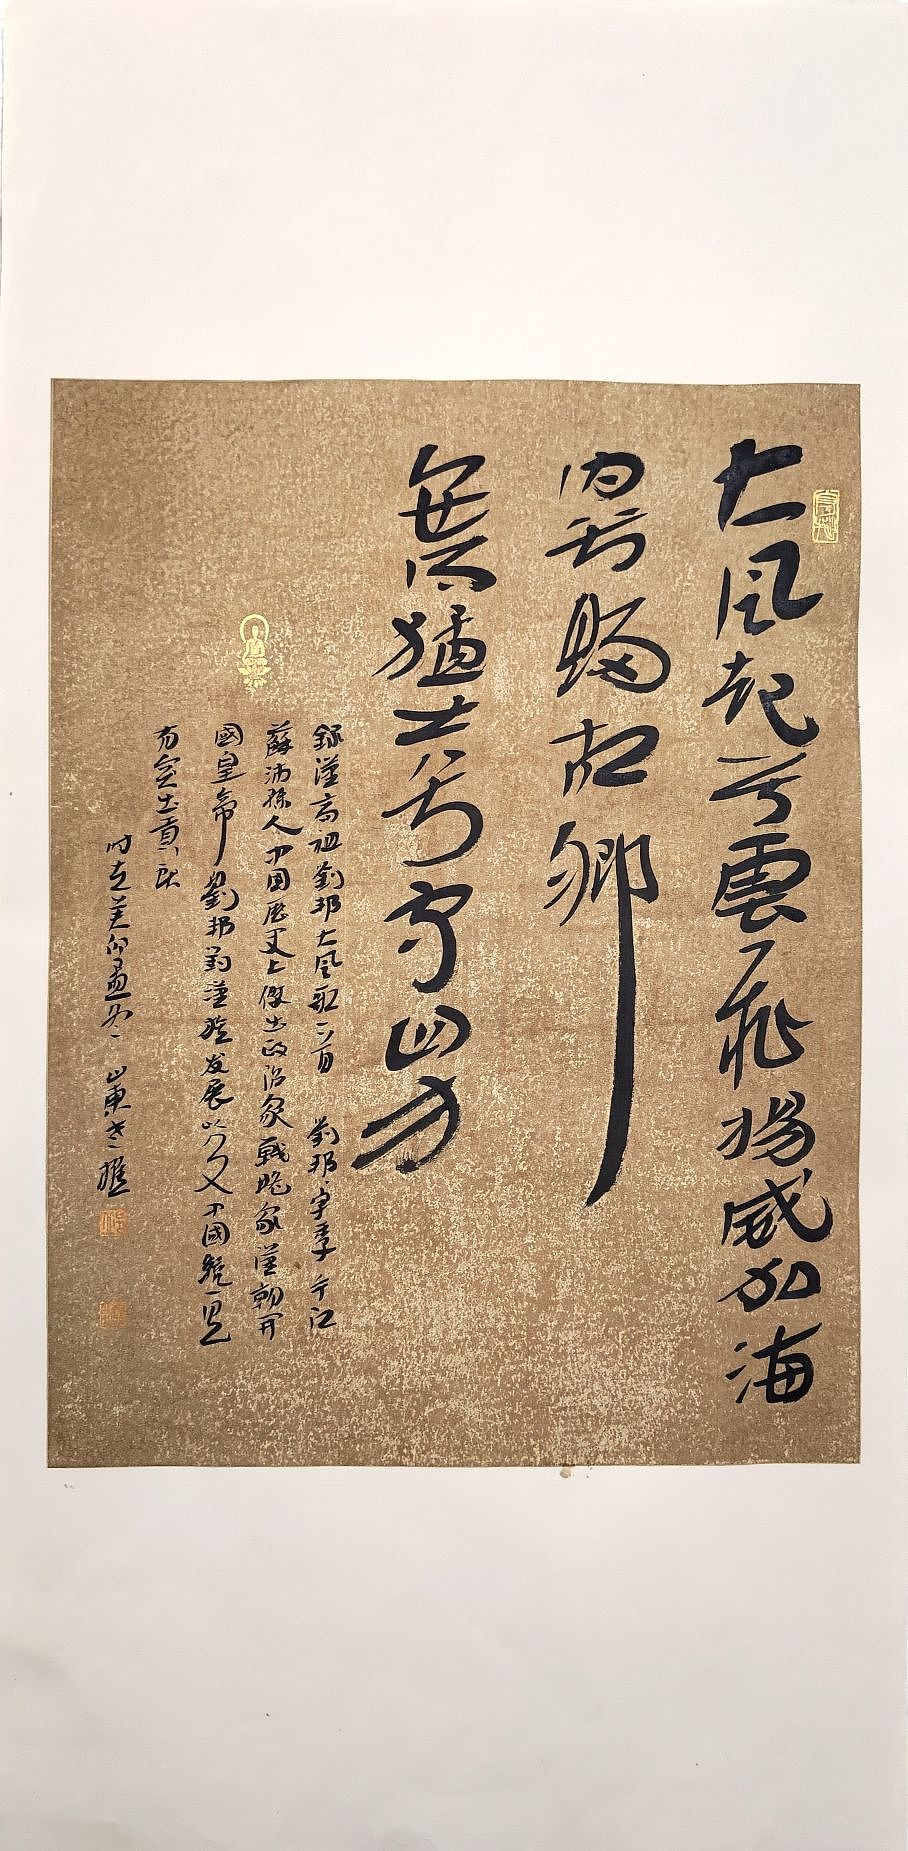 大風起兮雲飛揚威加海
内兮歸故鄉
安得猛士兮守四方
錄漢高祖劉邦大風歌一首 劉邦字季今江
蘇沛縣人中国歷史上傑出政治家戰略家漢朝開
國皇帝 劉邦對漢族发展以及中國統一是
有突出貢献
时在 孟冬 山東